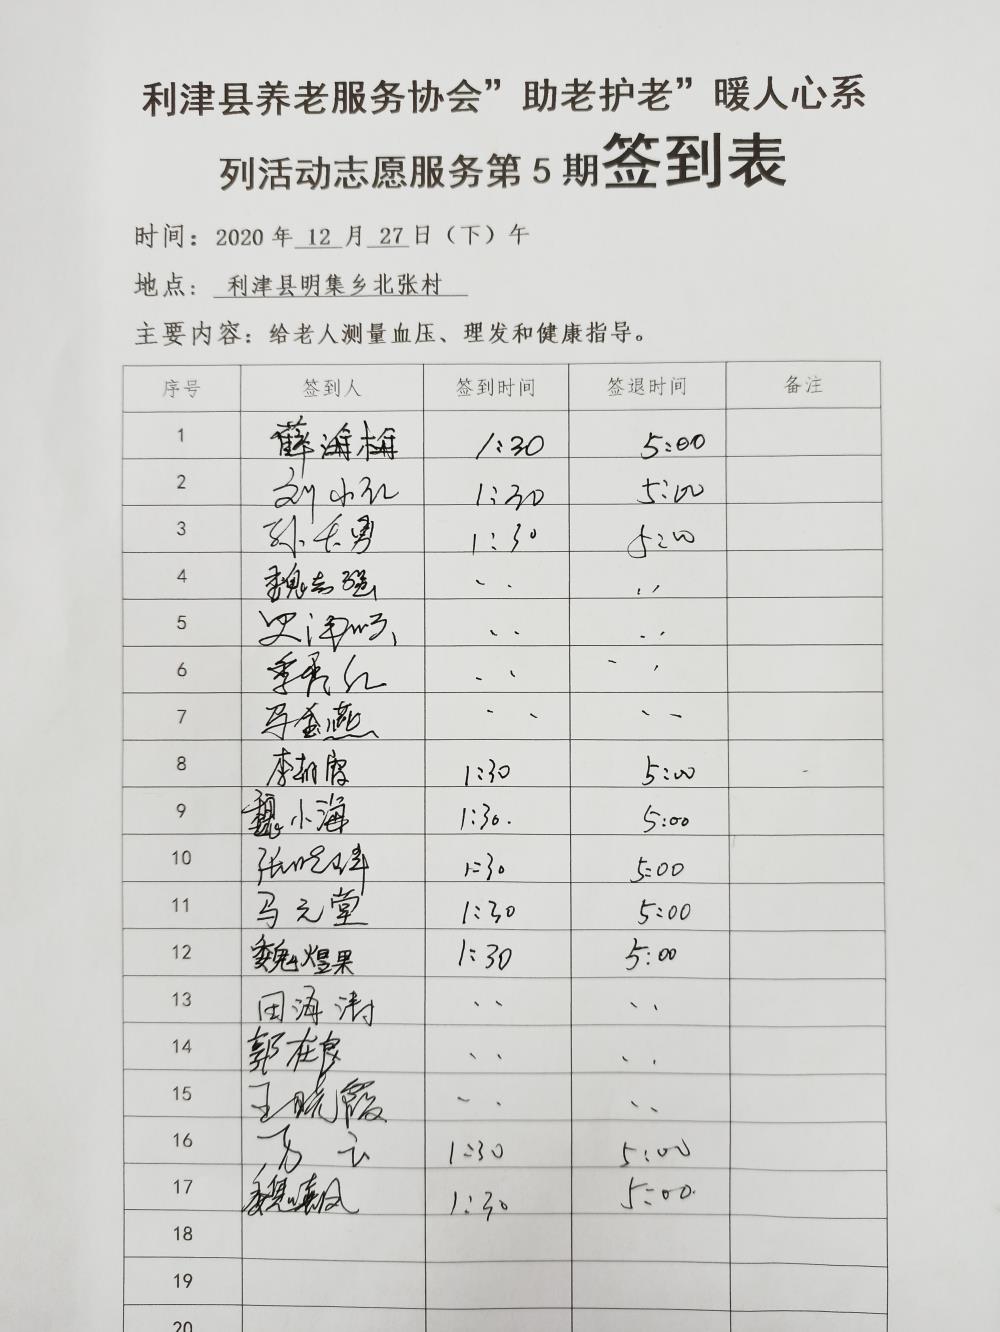 利津县养老服务协会”助老护老”暖人心系
列活动志愿服务第5期签到表
时间：2020年 12 月 27 日（下）午
地点： 利津县明集乡北张村
主要内容：给老人测量血压、理发和健康指导。
序号 签到人 签到时间 签退时间 备注
1 薛海梅 1:30 5:00
2 刘小红 1:30 5:00
3 孙长勇 1:30 5:00
4 魏志强 〃 〃
5 〃 〃
6 季秀红 〃 〃
7 马金燕 〃 〃
8 李朝霞 1:30 5:00
9 魏小海 1:30. 5:00
10 1:30 5:00
11 马元堂 1:30 5:00
12 魏煜果 1:30 5:00
13 田海涛 〃 〃
14 郭在良 〃 〃
15 王晓霞 〃 〃
16 1:30 5:00
17 魏晓凤 1:30 5:00.
18
19
20